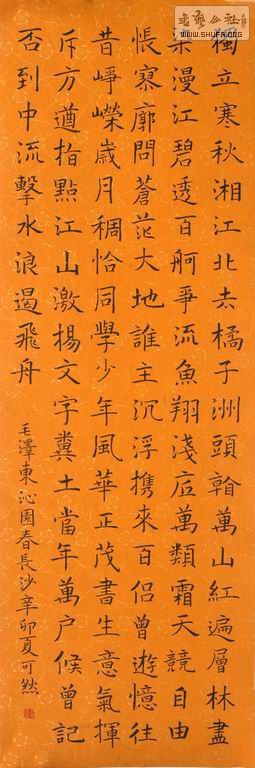 獨立寒秋湘江北去橘子洲頭看萬山紅遍層林盡
染漫江碧透百舸爭流魚翔淺底萬類霜天競自由
悵寥廓問蒼茫大地誰主沉浮携來百侶曾遊憶往
昔崢嶸歲月稠恰同學少年風華正茂書生意氣揮
斥方遒指點江山激揚文字糞土當年萬户候曾記
否到中流擊水浪遏飛舟
毛澤東沁園春長沙辛卯夏可然
WWW.SHUFA.ORG